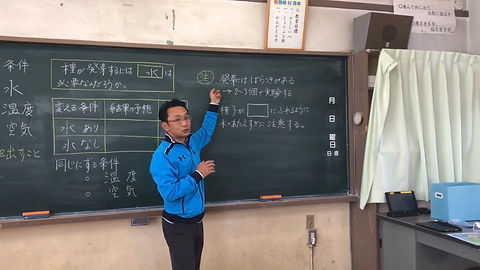 条件
水
温度
空気
を出すこと
種が発芽するには 水 は
必要なのだろうか。
変える条件 結果の予想
水 あり
水 なし
同じにする条件
○ 温度
○ 空気
注 発芽にはばらつきがある
→2~3個で実験する
種子が □ にふれるように
水のあたえすぎに注意する。
月
日
曜日